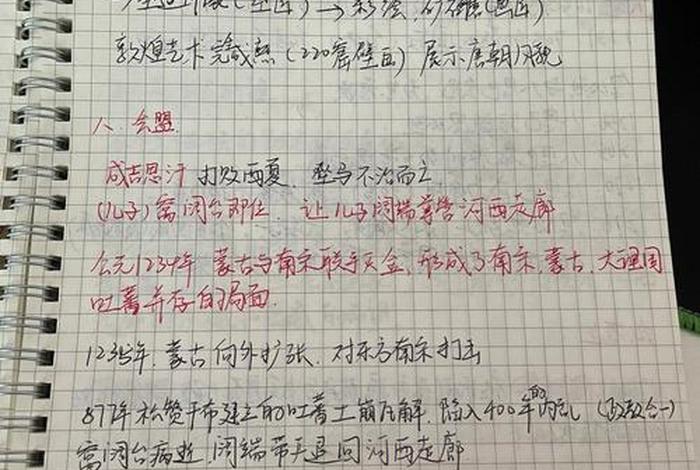 敦煌艺术完成熟(220窟壁画) 展示唐朝风貌
八. 会盟
成吉思汗 打败西夏. 坠马不治而亡
(儿子)窝阔台即位. 让儿子阔端掌管河西走廊
公元1234年 蒙古与南宋联手灭金, 形成了南宋, 蒙古, 大理国
吐蕃并存的局面.
1235年, 蒙古向外扩张. 对东方南宋打击
877年 松赞干布建立的吐蕃土崩瓦解. 陷入400年的内乱 (政教合一)
窝阔台病逝, 阔端带手退回河西走廊